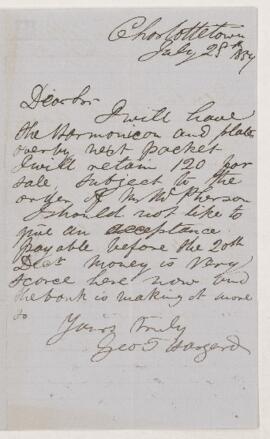 Charlottetown
July 28th 1859
Dear Sir
I will have
the Harmonicon and plates
over by next packet
I will retain 120 for
sale, subject to the
order of Mr McPherson
I should not like to
give an acceptance
payable before the 20th
Decr money is very
scarce here now and
the bank is making it more
so
Yours truly
Geo T Haszard